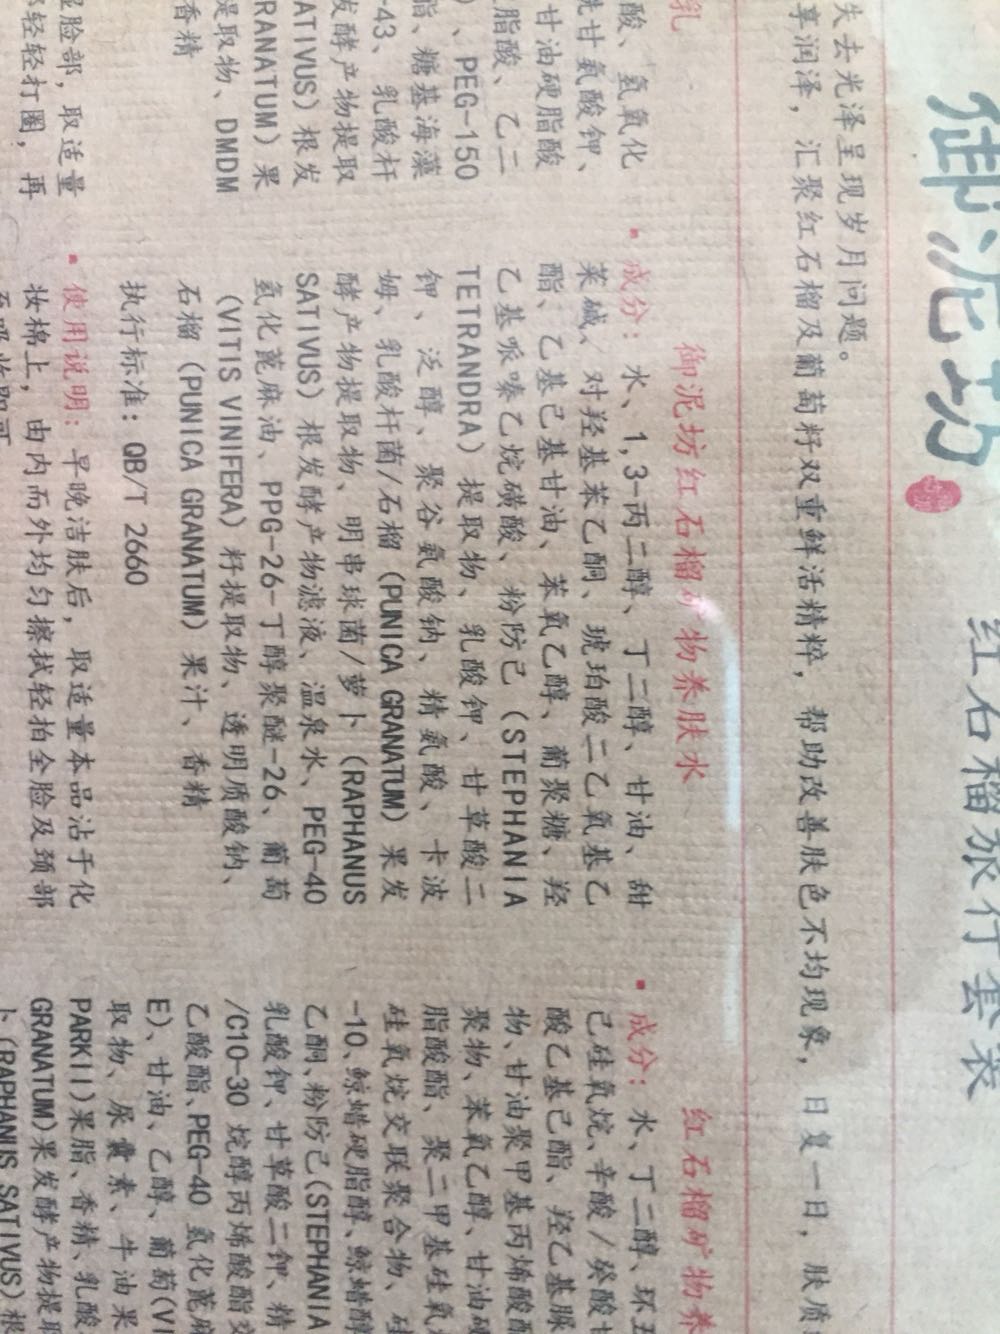 御泥坊
红石榴旅行套装
失去光泽呈现岁月问题。
享润泽，汇聚红石榴及葡萄籽双重鲜活精粹，帮助改善肤色不均现象，日复一日，肤质
乳
酸、氢氧化
洗甘氨酸钾、
甘油硬脂酸
脂酸、乙二
）、PEG-150
脂、糖基海藻
-43、乳酸杆
发酵产物提取
ATIVUS）根发
RANATUM）果
提取物、DMDM
香精
湿脸部，取适量
轻轻打圈，再
御泥坊红石榴矿物养肤水
·成分：水、1,3-丙二醇、丁二醇、甘油、甜
菜碱、对羟基苯乙酮、琥珀酸二乙氧基乙
酯、乙基己基甘油、苯氧乙醇、葡聚糖、羟
乙基哌嗪乙烷磺酸、粉防己（STEPHANIA
TETRANDRA）提取物、乳酸钾、甘草酸二
钾、泛醇、聚谷氨酸钠、精氨酸、卡波
姆、乳酸杆菌/石榴（PUNICA GRANATUM）果发
酵产物提取物、明串球菌/萝卜（RAPHANUS
SATIVUS）根发酵产物滤液、温泉水、PEG-40
氢化蓖麻油、PPG-26-丁醇聚醚-26、葡萄
（VITIS VINIFERA）籽提取物、透明质酸钠、
石榴（PUNICA GRANATUM）果汁、香精
执行标准：QB/T 2660
·使用说明：早晚洁肤后，取适量本品沾于化
妆棉上，由内而外均匀擦拭轻拍全脸及颈部
至吸收即可
红石榴矿物养
·成分：水、丁二醇、环五
己硅氧烷、辛酸/癸酸甘
酸乙基己酯、羟乙基脲
物、甘油聚甲基丙烯酸酯
聚物、苯氧乙醇、甘油硬
脂酸酯、聚二甲基硅氧
硅氧烷交联聚合物、硅
-10、鲸蜡硬脂醇、鲸蜡醇
乙酮、粉防己(STEPHANIA
乳酸钾、甘草酸二钾、精
/C10-30 烷醇丙烯酸酯交
乙酸酯、PEG-40 氢化蓖麻
E）、甘油、乙醇、葡萄(VI
取物、尿囊素、牛油果
PARKII)果脂、香精、乳酸
GRANATUM)果发酵产物提取
卜(RAPHANUS SATIVUS)根